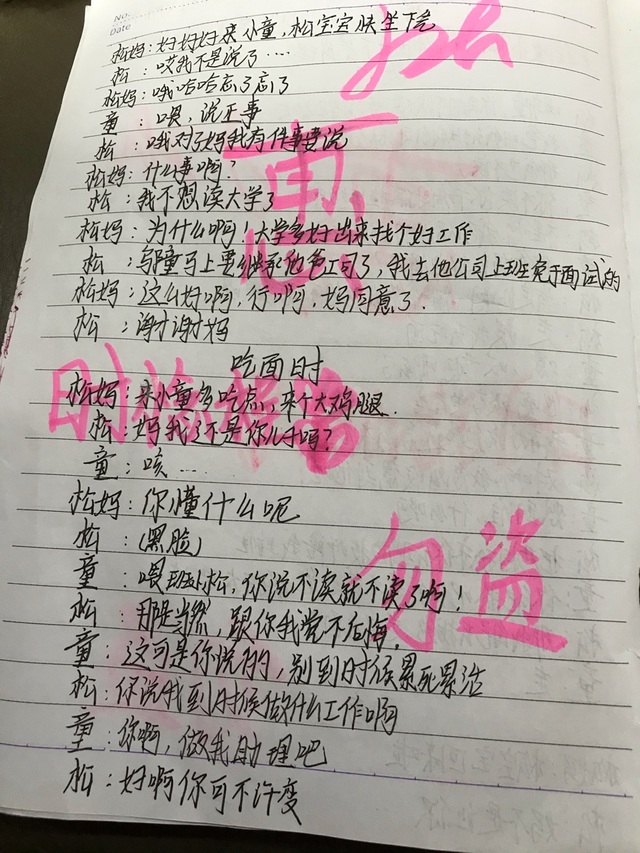 No.
Date
松妈：好好好来小童，松宝宝快坐下吃
松：哎我不是说了....
松妈：哦哈哈忘了忘了
童：喂，说正事
松：哦对了妈我有件事要说
松妈：什么事啊？
松：我不想读大学了
松妈：为什么啊！大学多好出来找个好工作
松：邬童马上要继承他爸公司了，我去他公司上班免于面试的
松妈：这么好啊，行啊，妈同意了.
松：谢谢妈
吃面时
松妈：来小童多吃点，来个大鸡腿.
松：妈我了不是你儿吗？
童：咳...
松妈：你懂什么呢
松：(黑脸)
童：喂班小松，你说不读就不读了啊！
松：那是当然，跟你我觉不后悔.
童：这可是你说的，别到时候累死累活
松：你说我到时候做什么工作啊
童：你啊，做我助理吧
松：好啊你可不许变
勿盗